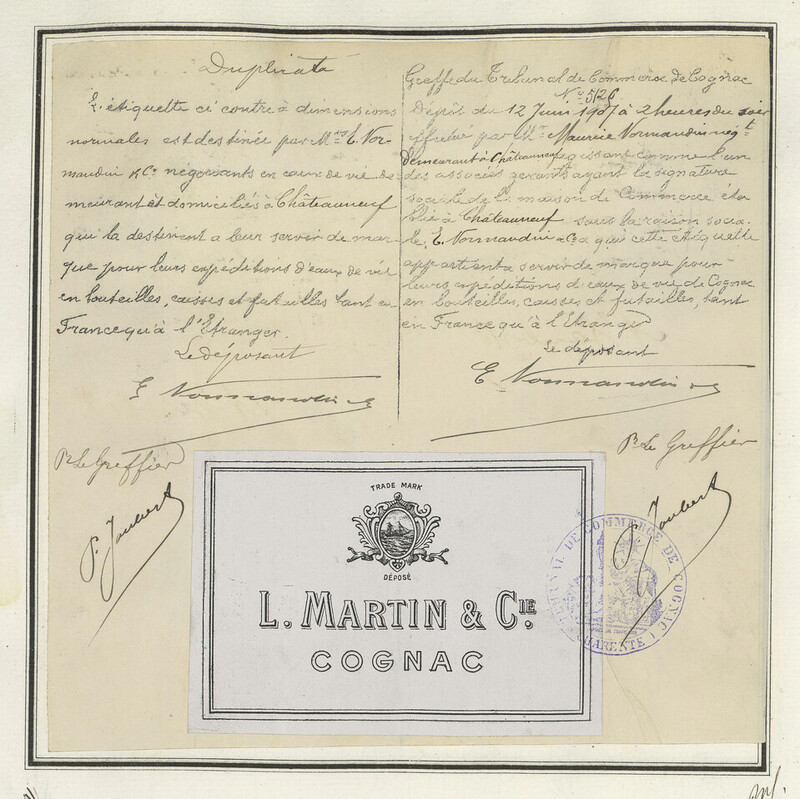 Duplicata
L'étiquette ci contre à dimensions
normales est destinée par Mrs E. Nor-
mandin & Co négociants en eaux de vie de-
meurant et domiciliés à Châteauneuf
qui la destinent a leur servir de mar-
que pour leurs expéditions d'eaux de vie
en bouteilles, caisses et futailles tant en
France qu'à l'Etranger.
Le déposant
E Normandin
Pr Le Greffier
P. Joubert
Greffe du Tribunal de Commerce de Cognac
No 5126
Dépôt du 12 Juin 1907 à 2 heures du soir
effectué par Mr Maurice Normandin négt
demeurant à Châteauneuf agissant comme l'un
des associés gérants ayant la signature
sociale de la maison de Commerce éta
blie à Châteauneuf sous la raison socia-
le, E. Normandin & Co à qui cette étiquette
appartient a servir de marque pour
leurs expéditions d'eaux de vie de Cognac
en bouteilles, caisses et futailles, tant
en France qu'à l'Etranger
Le déposant
E Normandin
Pr Le Greffier
P. Joubert
TRADE MARK
DÉPOSÉ
L. MARTIN & CIE.
COGNAC
TRIBUNAL DE COMMERCE DE COGNAC
CHARENTE